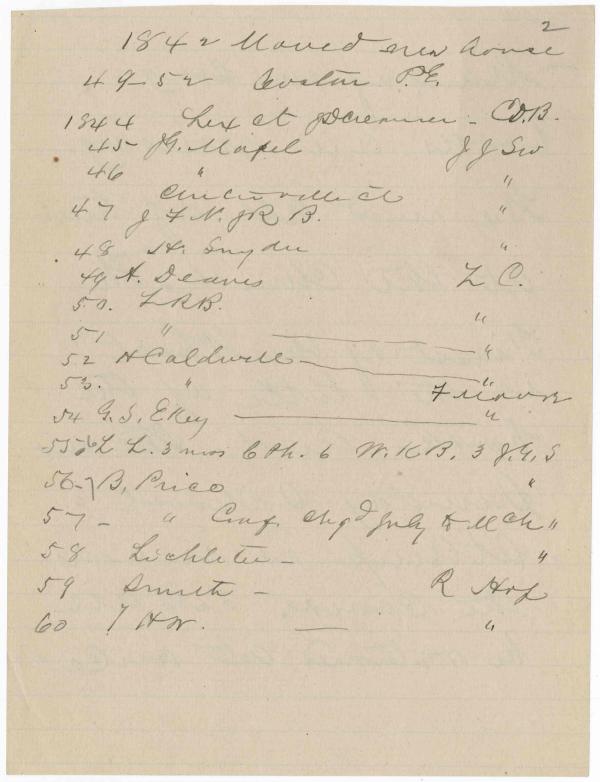 2
1842 Moved new house
49-52 P.E.
1844 Lex ct - C.D.B.
45 J.G. Mapel J J Sw
46 "
Circleville ct "
47 J F N. J R B. "
48 H. Snyder "
49 A. Deaves L C.
50. L R B. "
51 " "
52 H Caldwell - "
53. " F Moore
54 G. S. Ekey "
55-6 L L. 3 mos C Ph. 6 W. K B. 3 J. G. S
56-7 B, Price "
57 - " Conf. chgd July to Mch "
58 Lichliter - "
59 Smith - R Hop
60 " H W. — "